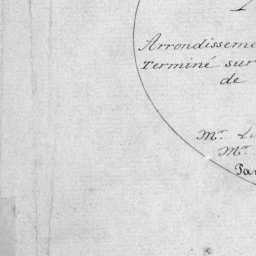 Arrondisseme
Terminé sur
de
Mr. 
Mr.